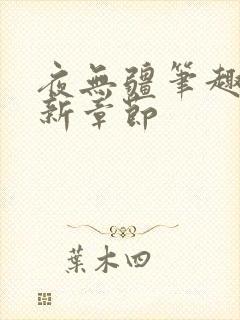 夜無疆筆趣
新章節
葉木四